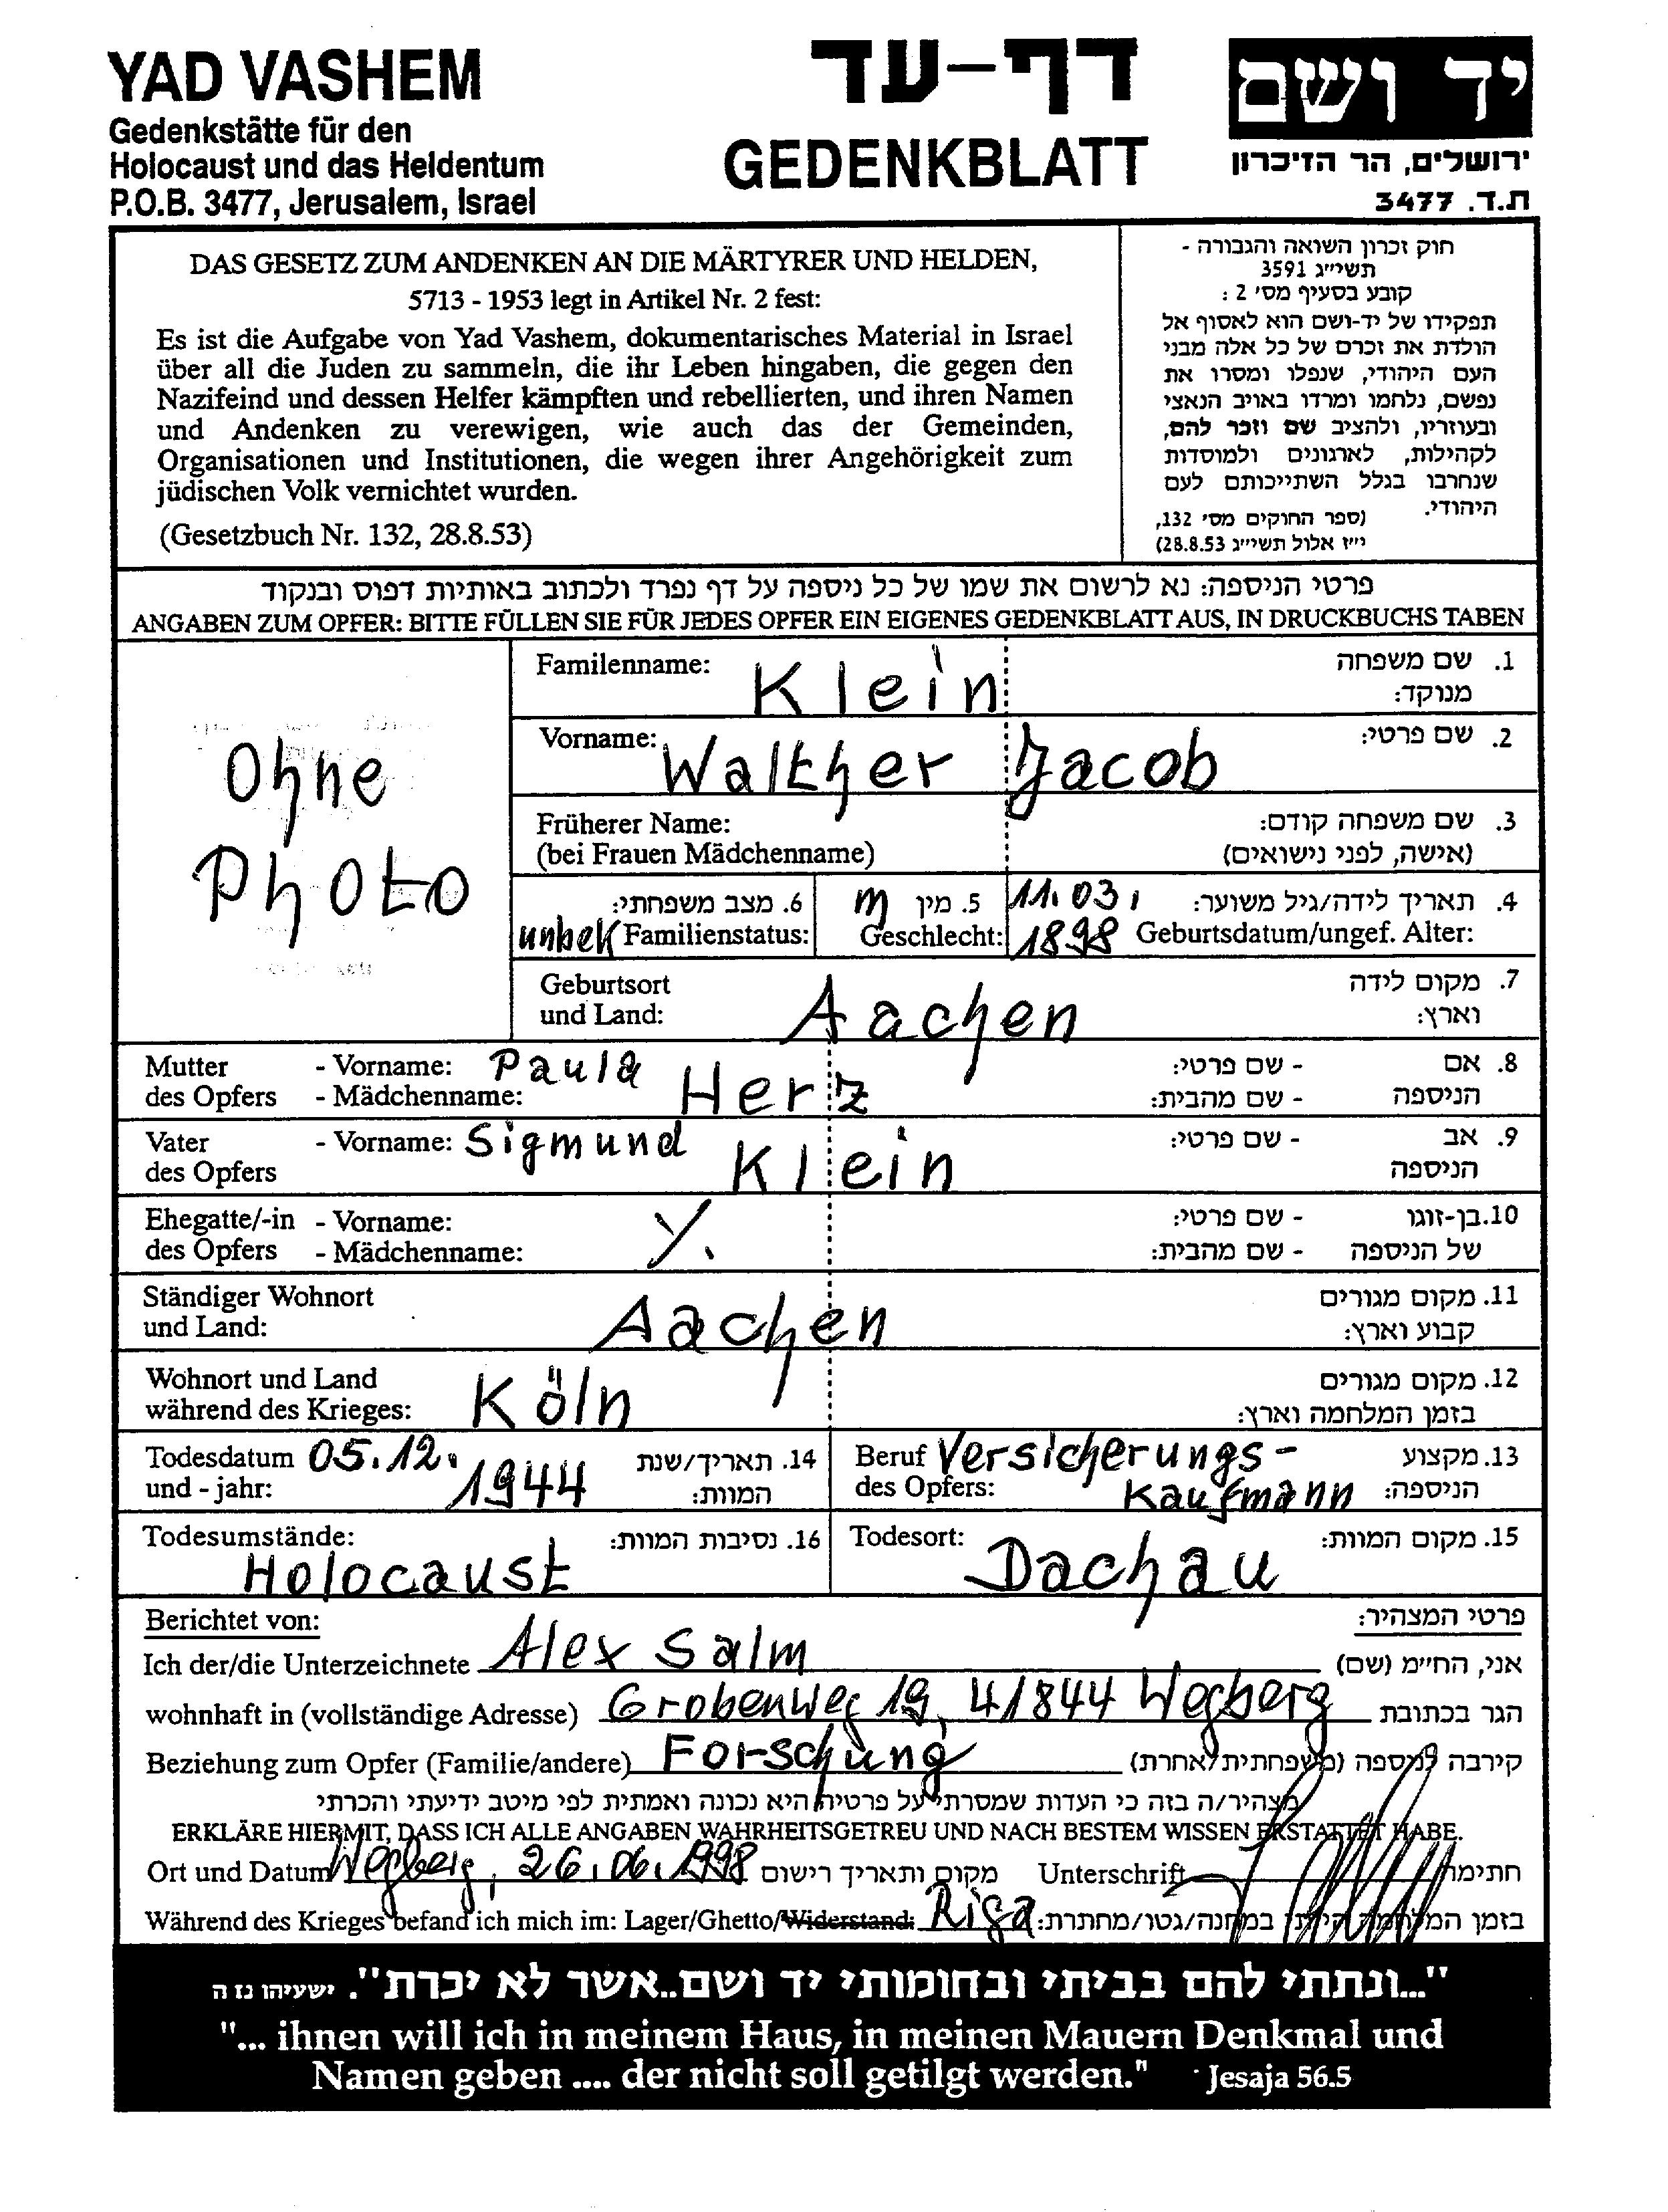 YAD VASHEM
Gedenkstätte für den
Holocaust und das Heldentum
P.O.B. 3477, Jerusalem, Israel
דף-עד
GEDENKBLATT
יד ושם
ירושלים, הר הזיכרון
ת.ד. 3477
DAS GESETZ ZUM ANDENKEN AN DIE MÄRTYRER UND HELDEN,
5713 - 1953 legt in Artikel Nr. 2 fest:
Es ist die Aufgabe von Yad Vashem, dokumentarisches Material in Israel
über all die Juden zu sammeln, die ihr Leben hingaben, die gegen den
Nazifeind und dessen Helfer kämpften und rebellierten, und ihren Namen
und Andenken zu verewigen, wie auch das der Gemeinden,
Organisationen und Institutionen, die wegen ihrer Angehörigkeit zum
jüdischen Volk vernichtet wurden.
(Gesetzbuch Nr. 132, 28.8.53)
חוק זכרון השואה והגבורה -
תשי״ג 3591
קובע בסעיף מס׳ 2 :
תפקידו של יד-ושם הוא לאסוף אל
הולדת את זכרם של כל אלה מבני
העם היהודי, שנפלו ומסרו את
נפשם, נלחמו ומרדו באויב הנאצי
ובעוזריו, ולהציב שם וזכר להם,
לקהילות, לארגונים ולמוסדות
שנחרבו בגלל השתייכותם לעם
היהודי.
(ספר החוקים מס׳ 132,
י״ז אלול תשי״ג 28.8.53)
פרטי הניספה: נא לרשום את שמו של כל ניספה על דף נפרד ולכתוב באותיות דפוס ובנקוד
ANGABEN ZUM OPFER: BITTE FÜLLEN SIE FÜR JEDES OPFER EIN EIGENES GEDENKBLATT AUS, IN DRUCKBUCHS TABEN
Ohne
Photo
Familenname: Klein 1. שם משפחה
מנוקד:
Vorname: Walther Jacob 2. שם פרטי:
Früherer Name: 3. שם משפחה קודם:
(bei Frauen Mädchenname) (אישה, לפני נישואים)
6. מצב משפחתי: 5. מין m 11.03. 4. תאריך לידה/גיל משוער:
unbek Familienstatus: Geschlecht: 1898 Geburtsdatum/ungef. Alter:
Geburtsort 7. מקום לידה
und Land: Aachen וארץ:
Mutter - Vorname: Paula - שם פרטי: 8. אם
des Opfers - Mädchenname: Herz - שם מהבית: הניספה
Vater - Vorname: Sigmund Klein - שם פרטי: 9. אב
des Opfers הניספה
Ehegatte/-in - Vorname: ./. - שם פרטי: 10. בן-זוגו
des Opfers - Mädchenname: - שם מהבית: של הניספה
Ständiger Wohnort 11. מקום מגורים
und Land: Aachen קבוע וארץ:
Wohnort und Land 12. מקום מגורים
während des Krieges: Köln בזמן המלחמה וארץ:
Todesdatum 05.12. 14. תאריך/שנת Beruf Versicherungs- 13. מקצוע
und - jahr: 1944 המוות: des Opfers: Kaufmann הניספה:
Todesumstände: 16. נסיבות המוות: Todesort: 15. מקום המוות:
Holocaust Dachau
Berichtet von: פרטי המצהיר:
Ich der/die Unterzeichnete Alex Salm אני, החי״מ (שם)
wohnhaft in (vollständige Adresse) Grobenweg 19, 41844 Wegberg הגר בכתובת
Beziehung zum Opfer (Familie/andere) Forschung קירבה לניספה (משפחתית/אחרת)
מצהיר/ה בזה כי העדות שמסרתי על פרטיה היא נכונה ואמתית לפי מיטב ידיעתי והכרתי
ERKLÄRE HIERMIT, DASS ICH ALLE ANGABEN WAHRHEITSGETREU UND NACH BESTEM WISSEN ERSTATTET HABE.
Ort und Datum Wegberg, 26.06.1998 מקום ותאריך רישום Unterschrift חתימה
Während des Krieges befand ich mich im: Lager/Ghetto/Widerstand: Riga בזמן המלחמה הייתי במחנה/גטו/מחתרת:
"...ונתתי להם בביתי ובחומותי יד ושם..אשר לא יכרת". ישעיהו נז ה
"... ihnen will ich in meinem Haus, in meinen Mauern Denkmal und
Namen geben .... der nicht soll getilgt werden." Jesaja 56.5